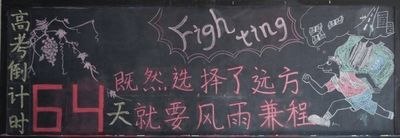 高考倒计时
64天
Fighting
既然选择了远方
就要风雨兼程